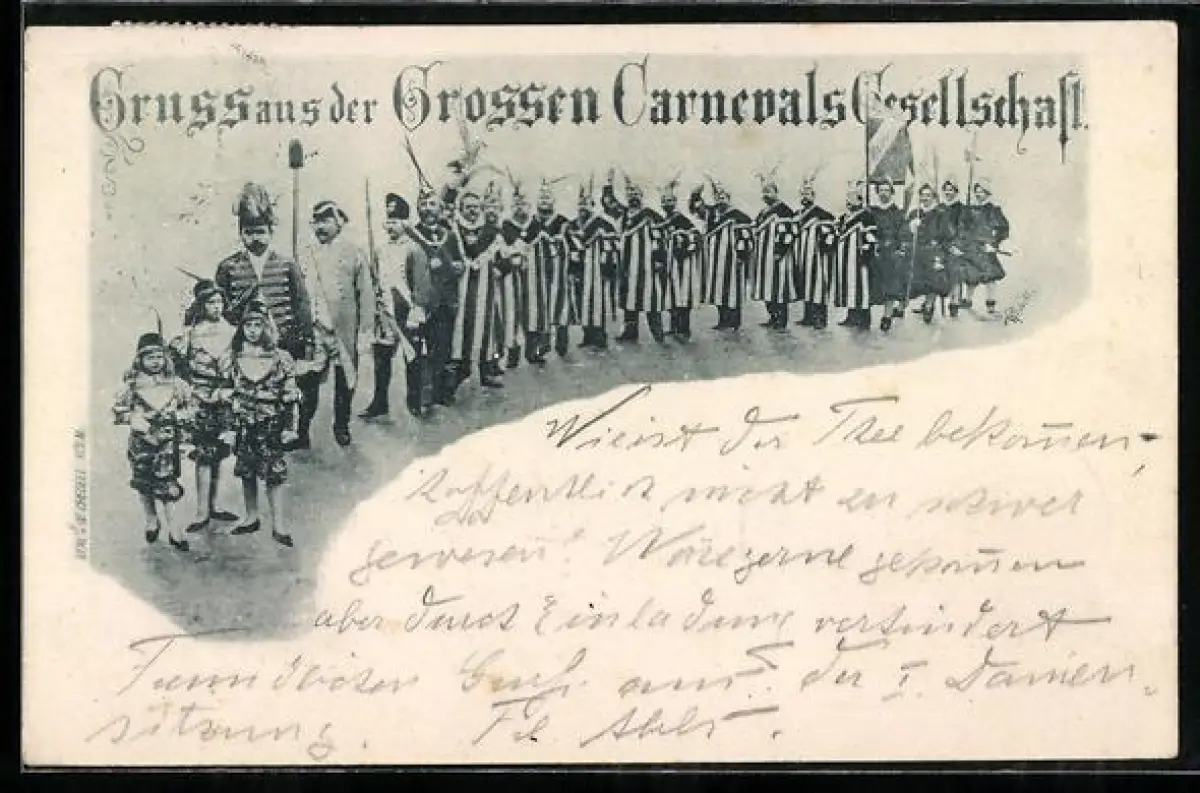 Gruss aus der Grossen Carnevals Gesellschaft.
Wie ist der Thee bekom̅en,
hoffentlich nicht zu schwer
gewesen? Wäre gerne gekom̅en
aber durch Einladung verhindert
Gruß aus der I. Damen-
sitzung.